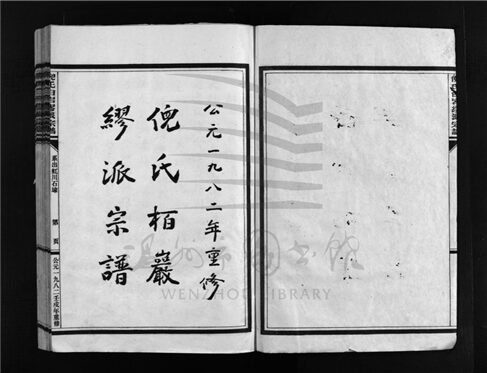 公元一九八二年重修
倪氏栢巖
繆派宗譜
系出虹川石埭
第 頁
公元一九八二壬戌年重修
温州市图书馆
WENZHOU LIBRARY